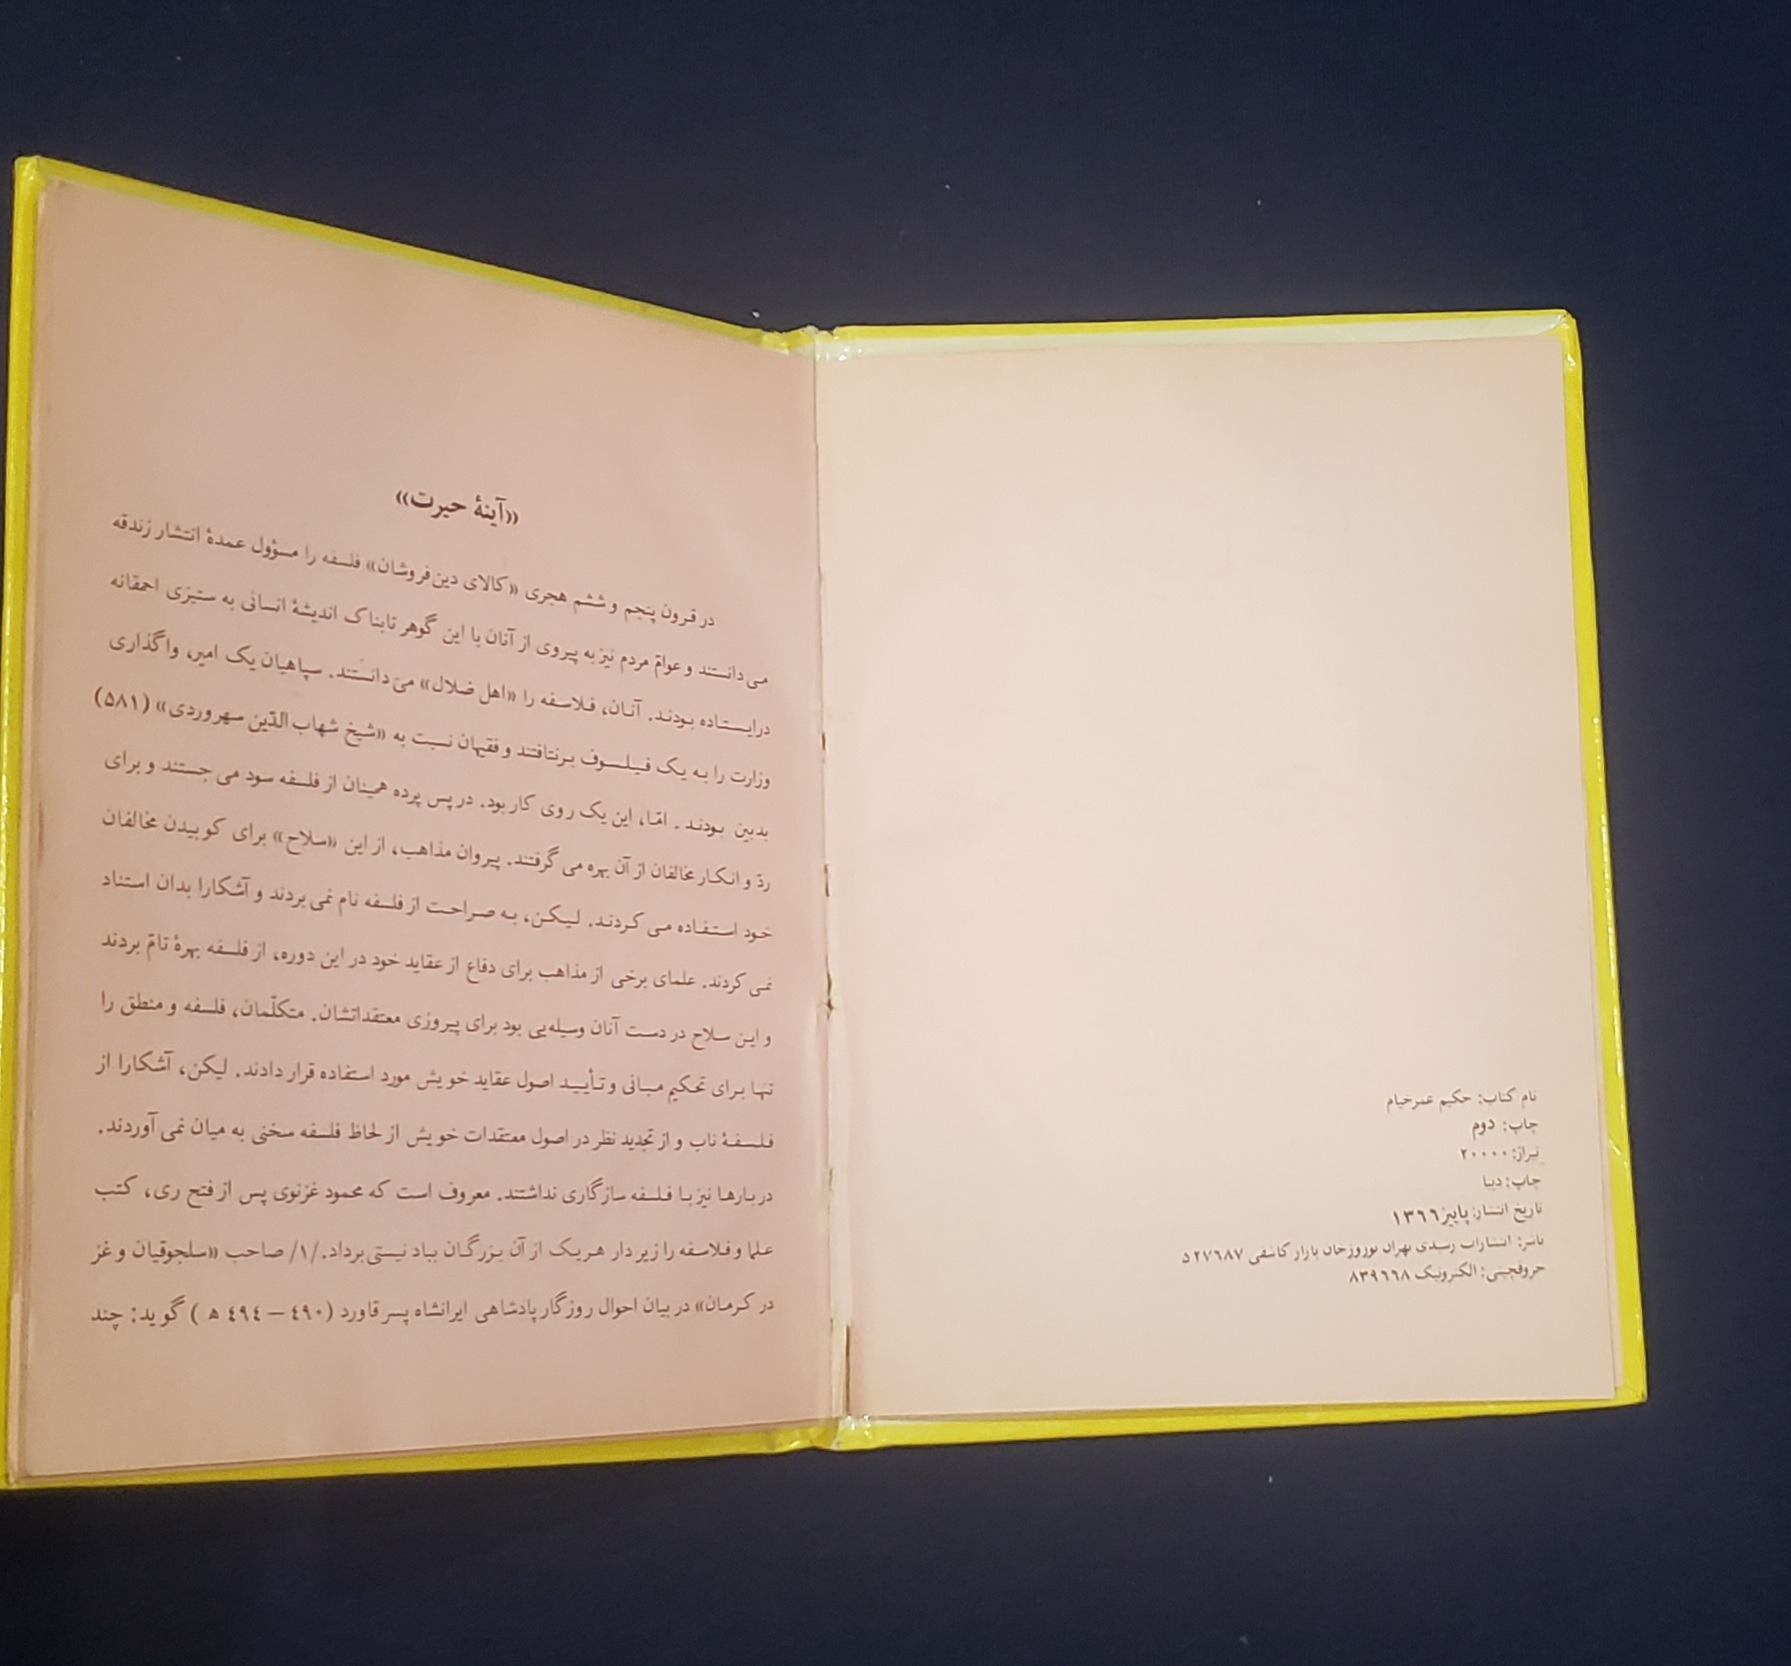 نام کتاب: حکیم عمرخیام
چاپ: دوم
تیراژ: ۲۰۰۰۰
چاپ: دیبا
تاریخ انتشار: پاییز ۱۳۶۶
ناشر: انتشارات رسدی تهران نوروزخان بازار کاشفی ۵۲۷۶۸۷
حروفچینی: الکترونیک ۸۳۹۶۶۸
«آینهٔ حیرت»
در قرون پنجم و ششم هجری «کالای دین‌فروشان» فلسفه را مسؤول عمدهٔ انتشار زندقه
می‌دانستند و عوامّ مردم نیز به پیروی از آنان با این گوهر تابناک اندیشهٔ انسانی به ستیزی احمقانه
درایستاده بودند. آنان، فلاسفه را «اهل ضلال» می‌دانستند. سپاهیان یک امیر، واگذاری
وزارت را به یک فیلسوف برنتافتند و فقیهان نسبت به «شیخ شهاب الدّین سهروردی» (۵۸۱)
بدبین بودند. امّا، این یک روی کار بود. در پس پرده همینان از فلسفه سود می‌جستند و برای
ردّ و انکار مخالفان از آن بهره می‌گرفتند. پیروان مذاهب، از این «سلاح» برای کوبیدن مخالفان
خود استفاده می‌کردند. لیکن، به صراحت از فلسفه نام نمی‌بردند و آشکارا بدان استناد
نمی‌کردند. علمای برخی از مذاهب برای دفاع از عقاید خود در این دوره، از فلسفه بهرهٔ تامّ بردند
و این سلاح در دست آنان وسیله‌یی بود برای پیروزی معتقداتشان. متکلّمان، فلسفه و منطق را
تنها برای تحکیم مبانی و تأیید اصول عقاید خویش مورد استفاده قرار دادند. لیکن، آشکارا از
فلسفهٔ ناب و از تجدید نظر در اصول معتقدات خویش از لحاظ فلسفه سخنی به میان نمی‌آوردند.
دربارها نیز با فلسفه سازگاری نداشتند. معروف است که محمود غزنوی پس از فتح ری، کتب
علما و فلاسفه را زیر دار هریک از آن بزرگان بباد نیستی برداد./۱/ صاحب «سلجوقیان و غز
در کرمان» در بیان احوال روزگار پادشاهی ایرانشاه پسر قاورد (۴۹۰ – ۴۹۴ ه ) گوید: چند